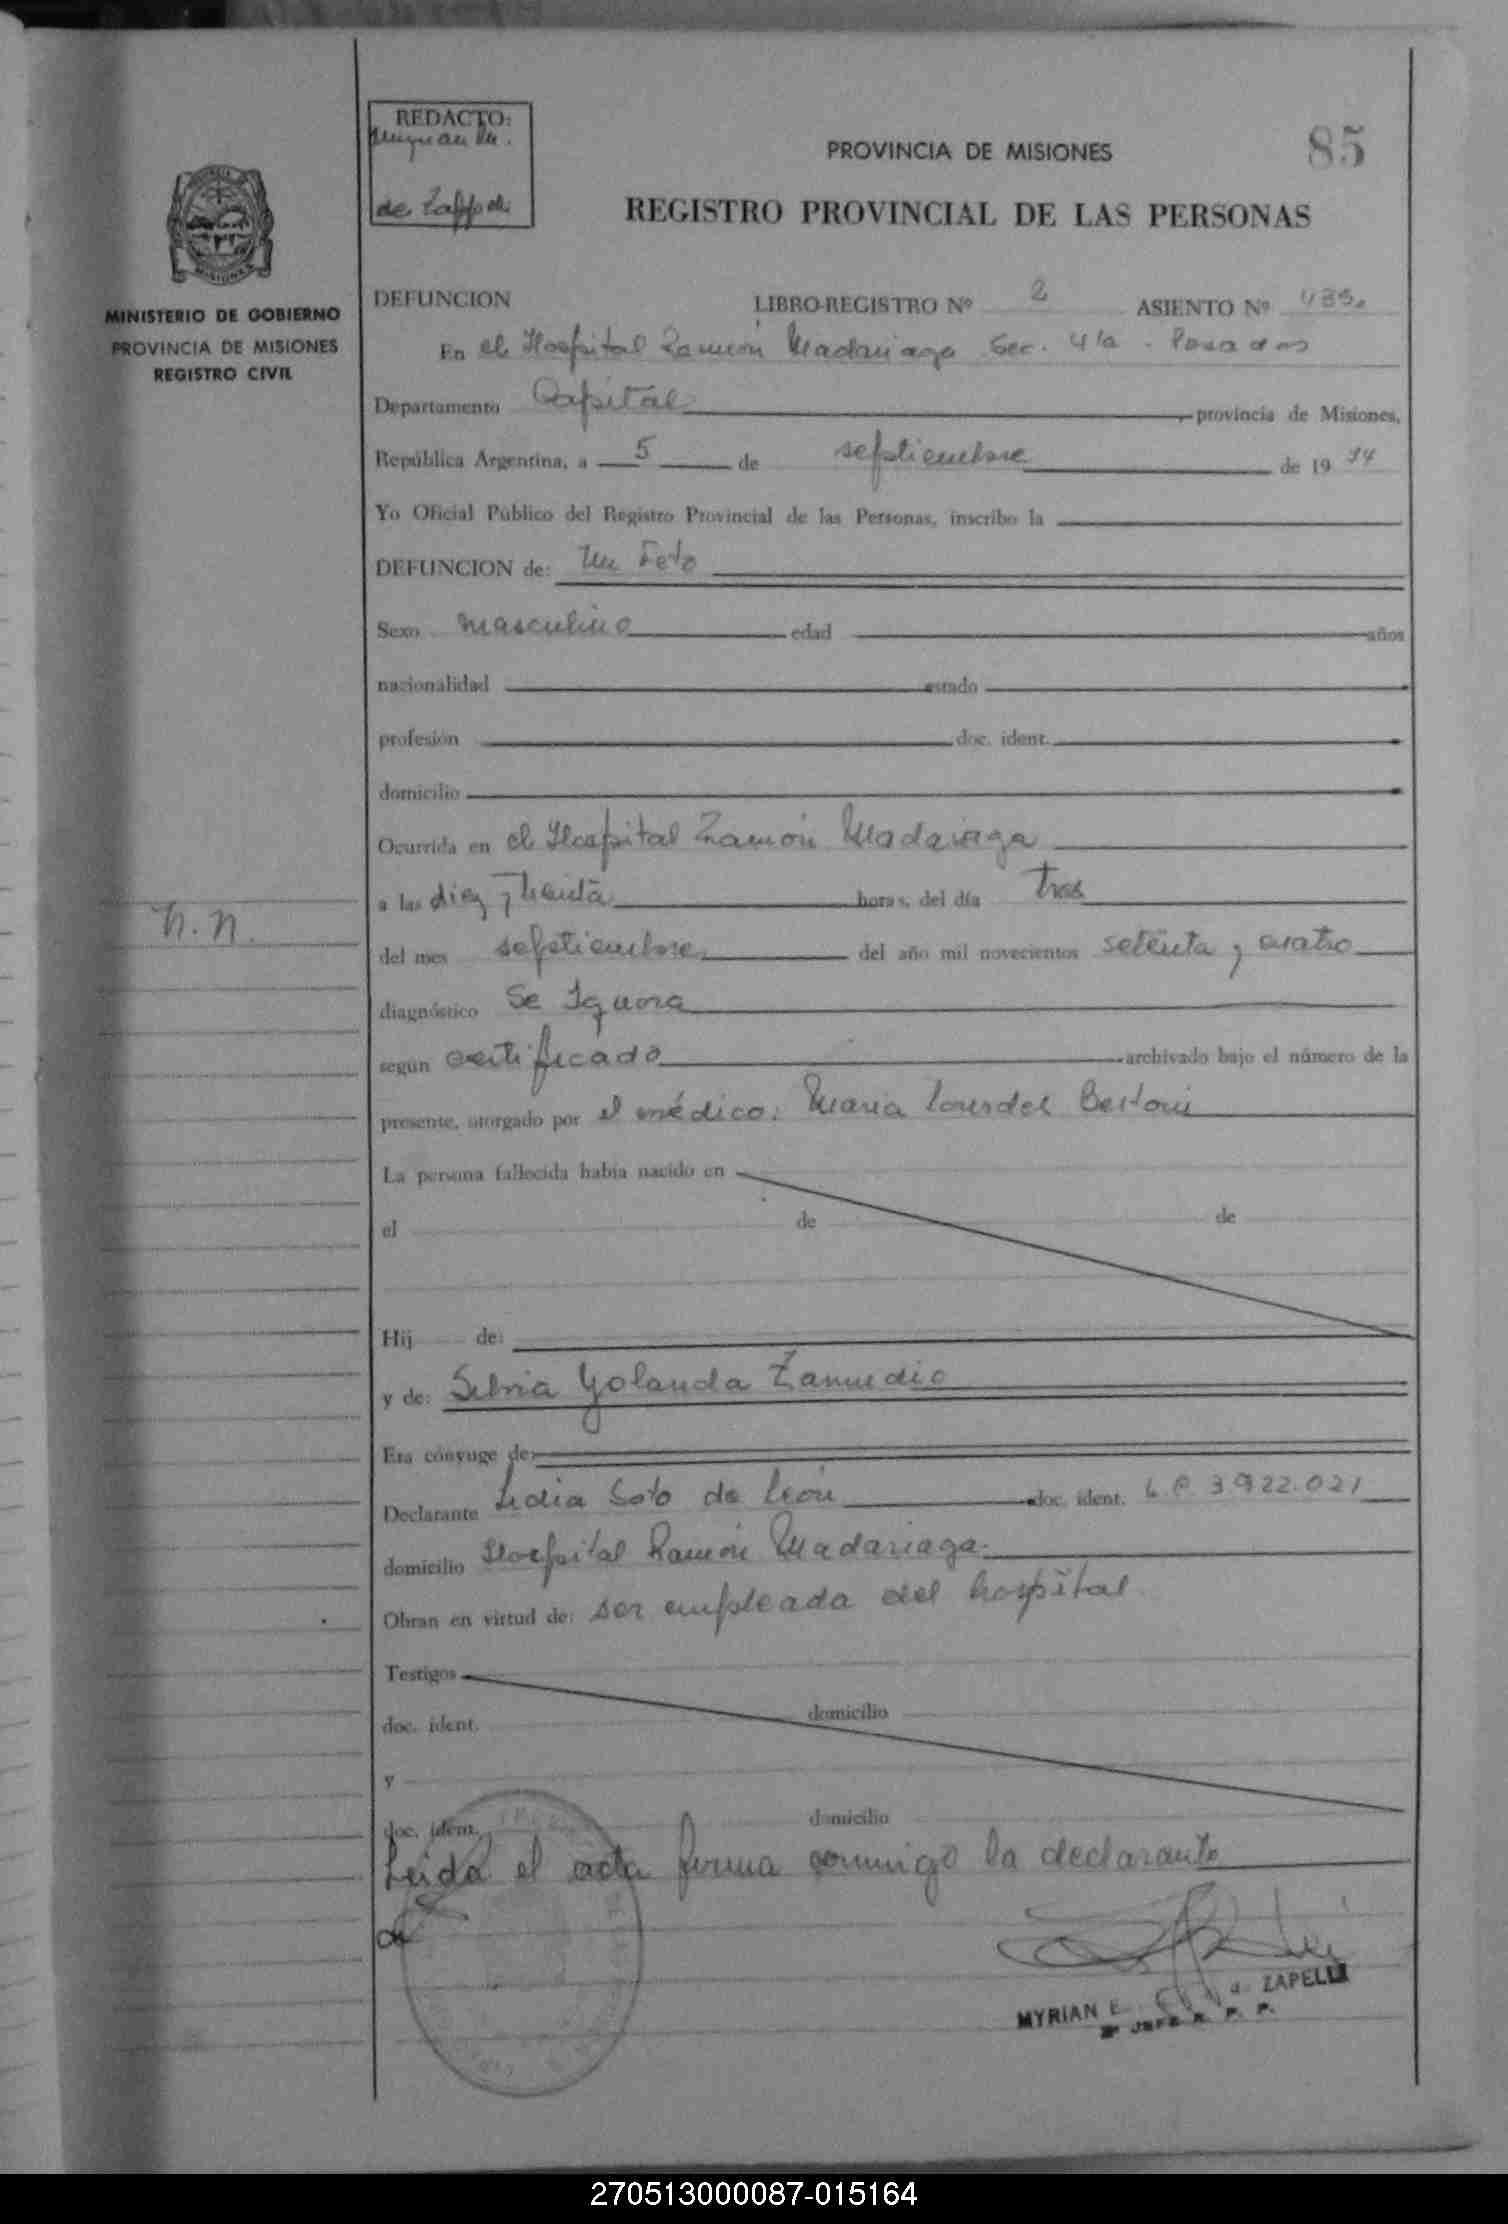 REDACTO:
de Zappeli
PROVINCIA DE MISIONES
85
REGISTRO PROVINCIAL DE LAS PERSONAS
MINISTERIO DE GOBIERNO
PROVINCIA DE MISIONES
REGISTRO CIVIL
DEFUNCION LIBRO-REGISTRO Nº 2 ASIENTO Nº
En el Hospital Ramón Madariaga Sec. 4ta - Posadas
Departamento Capital provincia de Misiones,
República Argentina, a 5 de septiembre de 19 74
Yo Oficial Público del Registro Provincial de las Personas, inscribo la
DEFUNCION de: Un Feto
Sexo masculino edad años
nacionalidad estado
profesión doc. ident.
domicilio
Ocurrida en el Hospital Ramón Madariaga
a las diez y treinta horas, del día tres
N.N.
del mes septiembre del año mil novecientos setenta y cuatro
diagnóstico Se Ignora
según certificado archivado bajo el número de la
presente, otorgado por el médico: Maria Lourdes Bertoni
La persona fallecida había nacido en
el de de
Hij de:
y de: Silvia Yolanda Zamudio
Era cónyuge de:
Declarante Lidia Soto de León doc. ident. L.C. 3.922.021
domicilio Hospital Ramón Madariaga
Obran en virtud de: ser empleada del hospital
Testigos
doc. ident. domicilio
y
doc. ident. domicilio
Leida el acta firma conmigo la declarante
MYRIAN E. ZAPELLI
2º JEFE R. P. P.
270513000087-015164